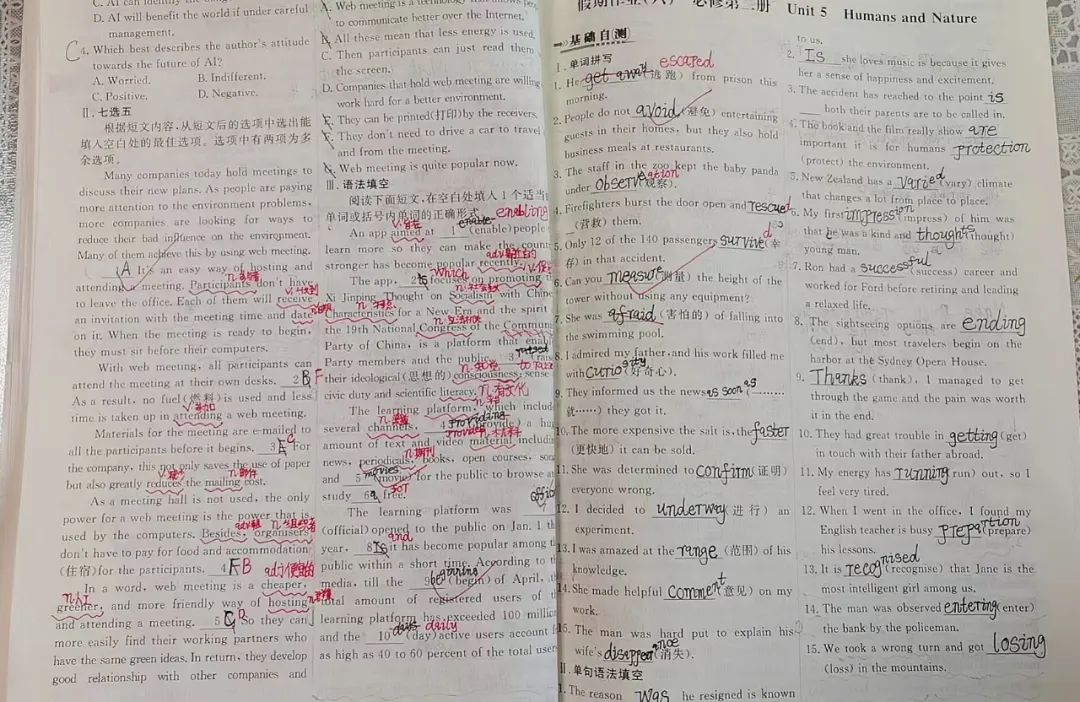 C. AI can identify the
D. AI will benefit the world under careful
management.
C 4. Which best describes the author's attitude
towards the future of AI?
A. Worried. B. Indifferent.
C. Positive. D. Negative.
Ⅱ. 七选五
根据短文内容,从短文后的选项中选出能
填入空白处的最佳选项。选项中有两项为多
余选项。
Many companies today hold meetings to
discuss their new plans. As people are paying
more attention to the environment problems,
more companies are looking for ways to
reduce their bad influence on the environment.
Many of them achieve this by using web meeting.
1 A It's an easy way of hosting and
attending a meeting. Participants don't have
to leave the office. Each of them will receive
an invitation with the meeting time and date
on it. When the meeting is ready to begin,
they must sit before their computers.
With web meeting, all participants can
attend the meeting at their own desks. 2 B F
As a result, no fuel(燃料) is used and less
time is taken up in attending a web meeting.
Materials for the meeting are e-mailed to
all the participants before it begins. 3 E C For
the company, this not only saves the use of paper
but also greatly reduces the mailing cost.
As a meeting hall is not used, the only
power for a web meeting is the power that is
used by the computers. Besides, organisers
don't have to pay for food and accommodation
(住宿)for the participants. 4 F B
In a word, web meeting is a cheaper,
greener, and more friendly way of hosting
and attending a meeting. 5 C D So they can
more easily find their working partners who
have the same green ideas. In return, they develop
good relationship with other companies and
A. Web meeting is a technology that allows people
to communicate better over the Internet.
B. All these mean that less energy is used.
C. Then participants can just read them
the screen.
D. Companies that hold web meeting are willing
work hard for a better environment.
E. They can be printed(打印)by the receivers.
F. They don't need to drive a car to travel
and from the meeting.
G. Web meeting is quite popular now.
Ⅲ. 语法填空
阅读下面短文,在空白处填入1个适当
单词或括号内单词的正确形式。 enabling
An app aimed at 1 enable (enable) people
learn more so they can make the country
stronger has become popular recently.
The app, 2 is which focuses on promoting
Xi Jinping Thought on Socialism with Chinese
Characteristics for a New Era and the spirit
the 19th National Congress of the Communist
Party of China, is a platform that enables
Party members and the public 3 raised (raise) to raise
their ideological(思想的) consciousness, sense
civic duty and scientific literacy.
The learning platform, which includes
several channels, 4 providing (provide) a huge
amount of text and video material, including
news, periodicals, books, open courses, songs
and 5 movies (movie) for the public to browse and
study 6 a for free.
The learning platform was
(official) opened to the public on Jan. 1 this
year, 8 is and it has become popular among the
public within a short time. According to the
media, till the 9 beginning (begin) of April, the
total amount of registered users of the
learning platform has exceeded 100 million
and the 10 days daily (day) active users account for
as high as 40 to 60 percent of the total users
假期作业(六) 必修第二册 Unit 5 Humans and Nature
基础自测
Ⅰ. 单词拼写 escaped
1. He get away (逃跑) from prison this
morning.
2. People do not avoid (避免) entertaining
guests in their homes, but they also hold
business meals at restaurants.
3. The staff in the zoo kept the baby panda
under observation (观察).
4. Firefighters burst the door open and rescued
(营救) them.
5. Only 12 of the 140 passengers survived (幸
存) in that accident.
6. Can you measure (测量) the height of the
tower without using any equipment?
7. She was afraid (害怕的) of falling into
the swimming pool.
8. I admired my father, and his work filled me
with curiosity (好奇心).
9. They informed us the news as soon as (………
就……) they got it.
10. The more expensive the salt is, the faster
(更快地) it can be sold.
11. She was determined to confirm (证明)
everyone wrong.
12. I decided to underway (进行) an
experiment.
13. I was amazed at the range (范围) of his
knowledge.
14. She made helpful comment (意见) on my
work.
15. The man was hard put to explain his
wife's disappearance (消失).
Ⅱ. 单句语法填空
1. The reason was he resigned is known
to us.
2. Is she loves music is because it gives
her a sense of happiness and excitement.
3. The accident has reached to the point is
both their parents are to be called in.
4. The book and the film really show are
important it is for humans protection
(protect) the environment.
5. New Zealand has a varied (vary) climate
that changes a lot from place to place.
6. My first impression (impress) of him was
that he was a kind and thoughts (thought)
young man.
7. Ron had a successful (success) career and
worked for Ford before retiring and leading
a relaxed life.
8. The sightseeing options are ending
(end), but most travelers begin on the
harbor at the Sydney Opera House.
9. Thanks (thank), I managed to get
through the game and the pain was worth
it in the end.
10. They had great trouble in getting (get)
in touch with their father abroad.
11. My energy has running (run) out, so I
feel very tired.
12. When I went in the office, I found my
English teacher is busy prepartion (prepare)
his lessons.
13. It is recognised (recognise) that Jane is the
most intelligent girl among us.
14. The man was observed entering (enter)
the bank by the policeman.
15. We took a wrong turn and got losing
(loss) in the mountains.